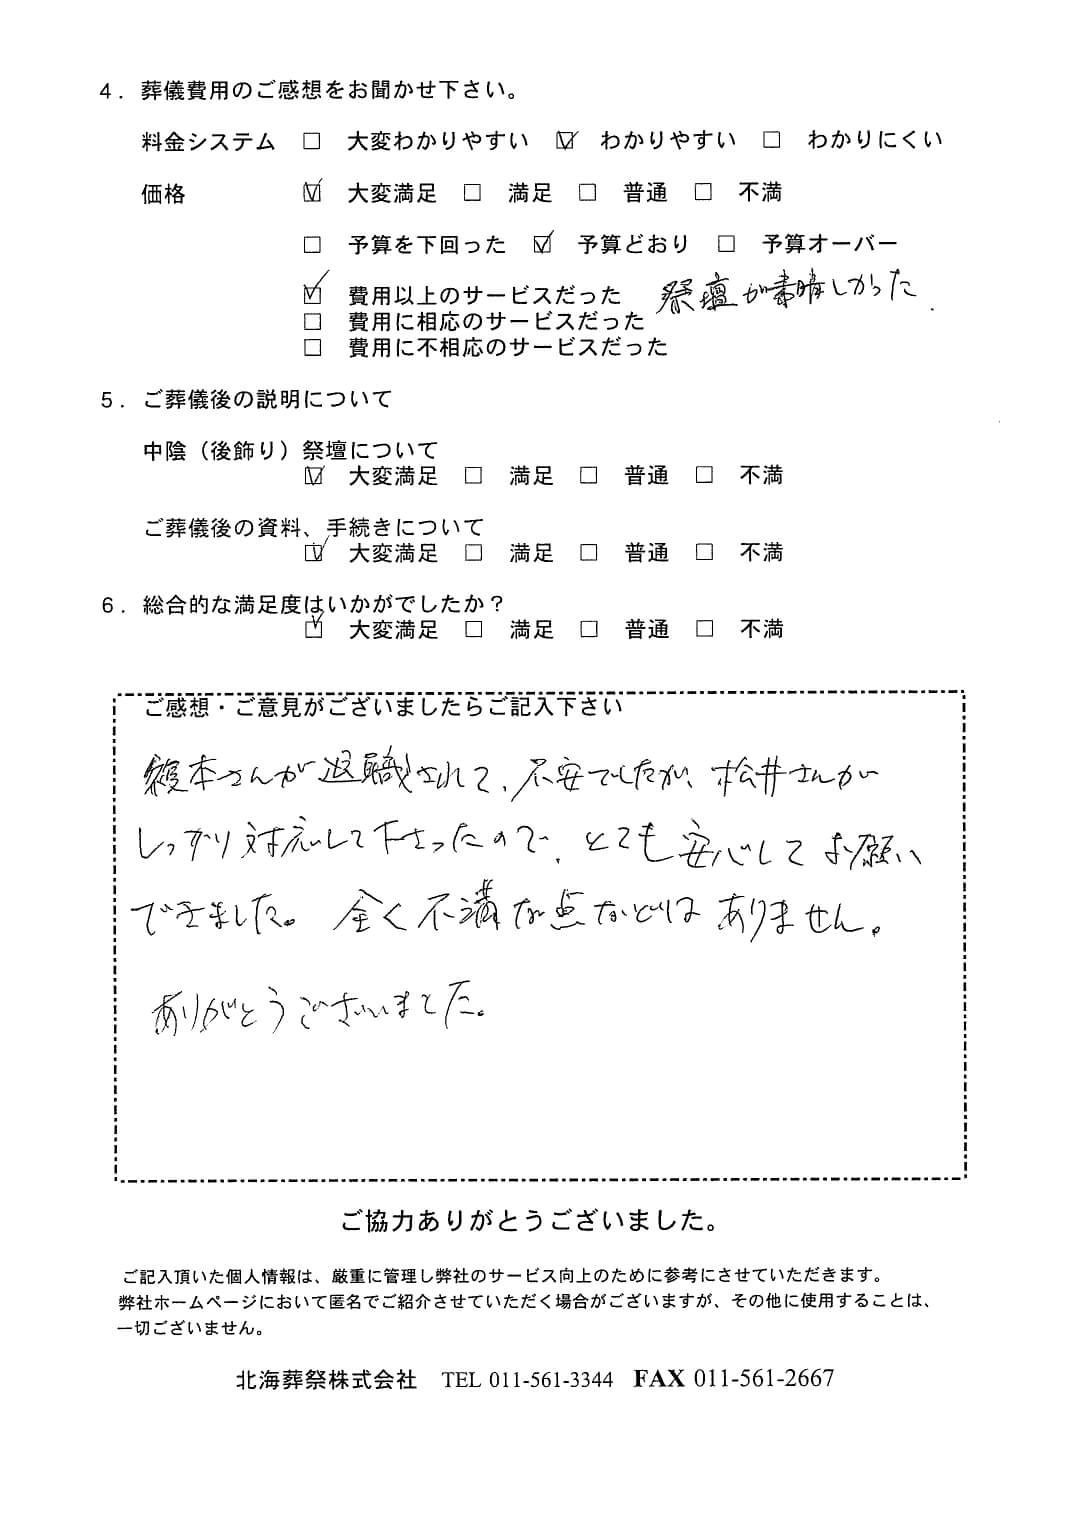 ４．葬儀費用のご感想をお聞かせ下さい。
料金システム □ 大変わかりやすい ☑ わかりやすい □ わかりにくい
価格 ☑ 大変満足 □ 満足 □ 普通 □ 不満
□ 予算を下回った ☑ 予算どおり □ 予算オーバー
☑ 費用以上のサービスだった 祭壇が素晴しかった.
□ 費用に相応のサービスだった
□ 費用に不相応のサービスだった
５．ご葬儀後の説明について
中陰（後飾り）祭壇について
☑ 大変満足 □ 満足 □ 普通 □ 不満
ご葬儀後の資料、手続きについて
☑ 大変満足 □ 満足 □ 普通 □ 不満
６．総合的な満足度はいかがでしたか？
☑ 大変満足 □ 満足 □ 普通 □ 不満
ご感想・ご意見がございましたらご記入下さい
本さんが退職されて、不安でしたが、松井さんが
しっかり対応して下さったので、とても安心してお願い
できました。全く不満な点などはありません。
ありがとうございました。
ご協力ありがとうございました。
ご記入頂いた個人情報は、厳重に管理し弊社のサービス向上のために参考にさせていただきます。
弊社ホームページにおいて匿名でご紹介させていただく場合がございますが、その他に使用することは、
一切ございません。
北海葬祭株式会社 TEL 011-561-3344 FAX 011-561-2667